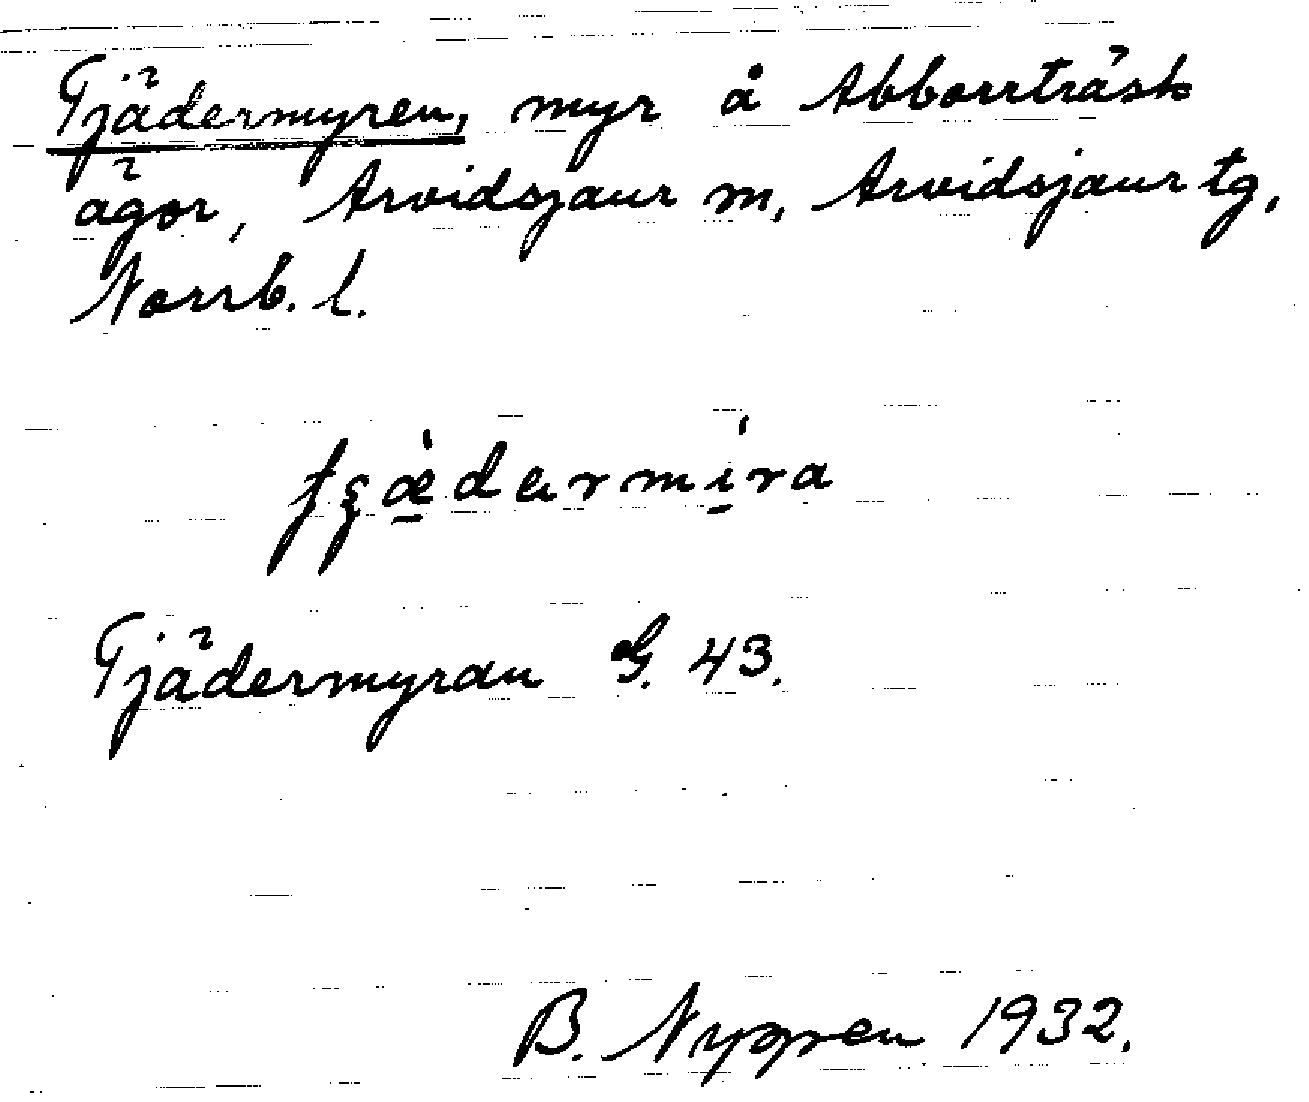 Tjädermyren, myr å Abborrträsk
ägor, Arvidsjaur m, Arvidsjaur tg,
Norrb. l.
Tjädermyran G. 43.
B. Nygren 1932.